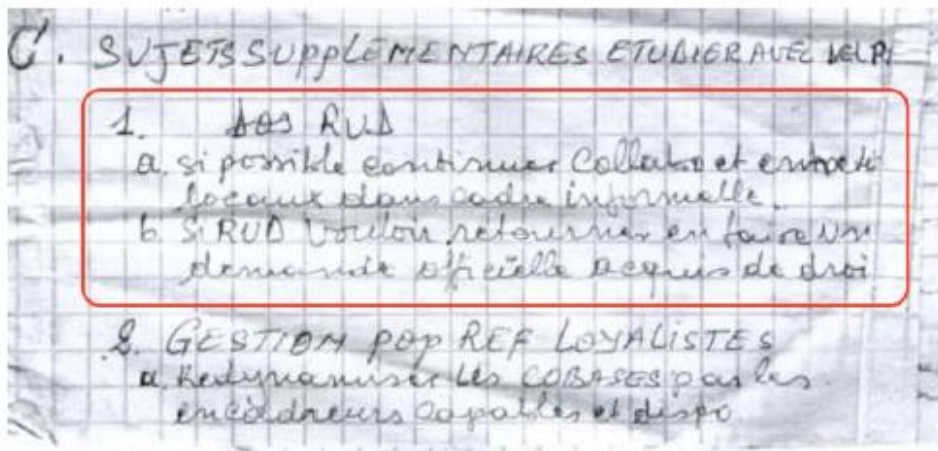 C. SUJETS SUPPLEMENTAIRES ETUDIER AVEC
1. DOS RUD
a. si possible continuer Collabo et
locaux dans cadre informelle.
b. Si RUD vouloir retourner en faire
demande officielle acquis de droi
2. GESTION POP REF LOYALISTES
a. Redynamiser les COBASES par les
encadreurs capables et dispo